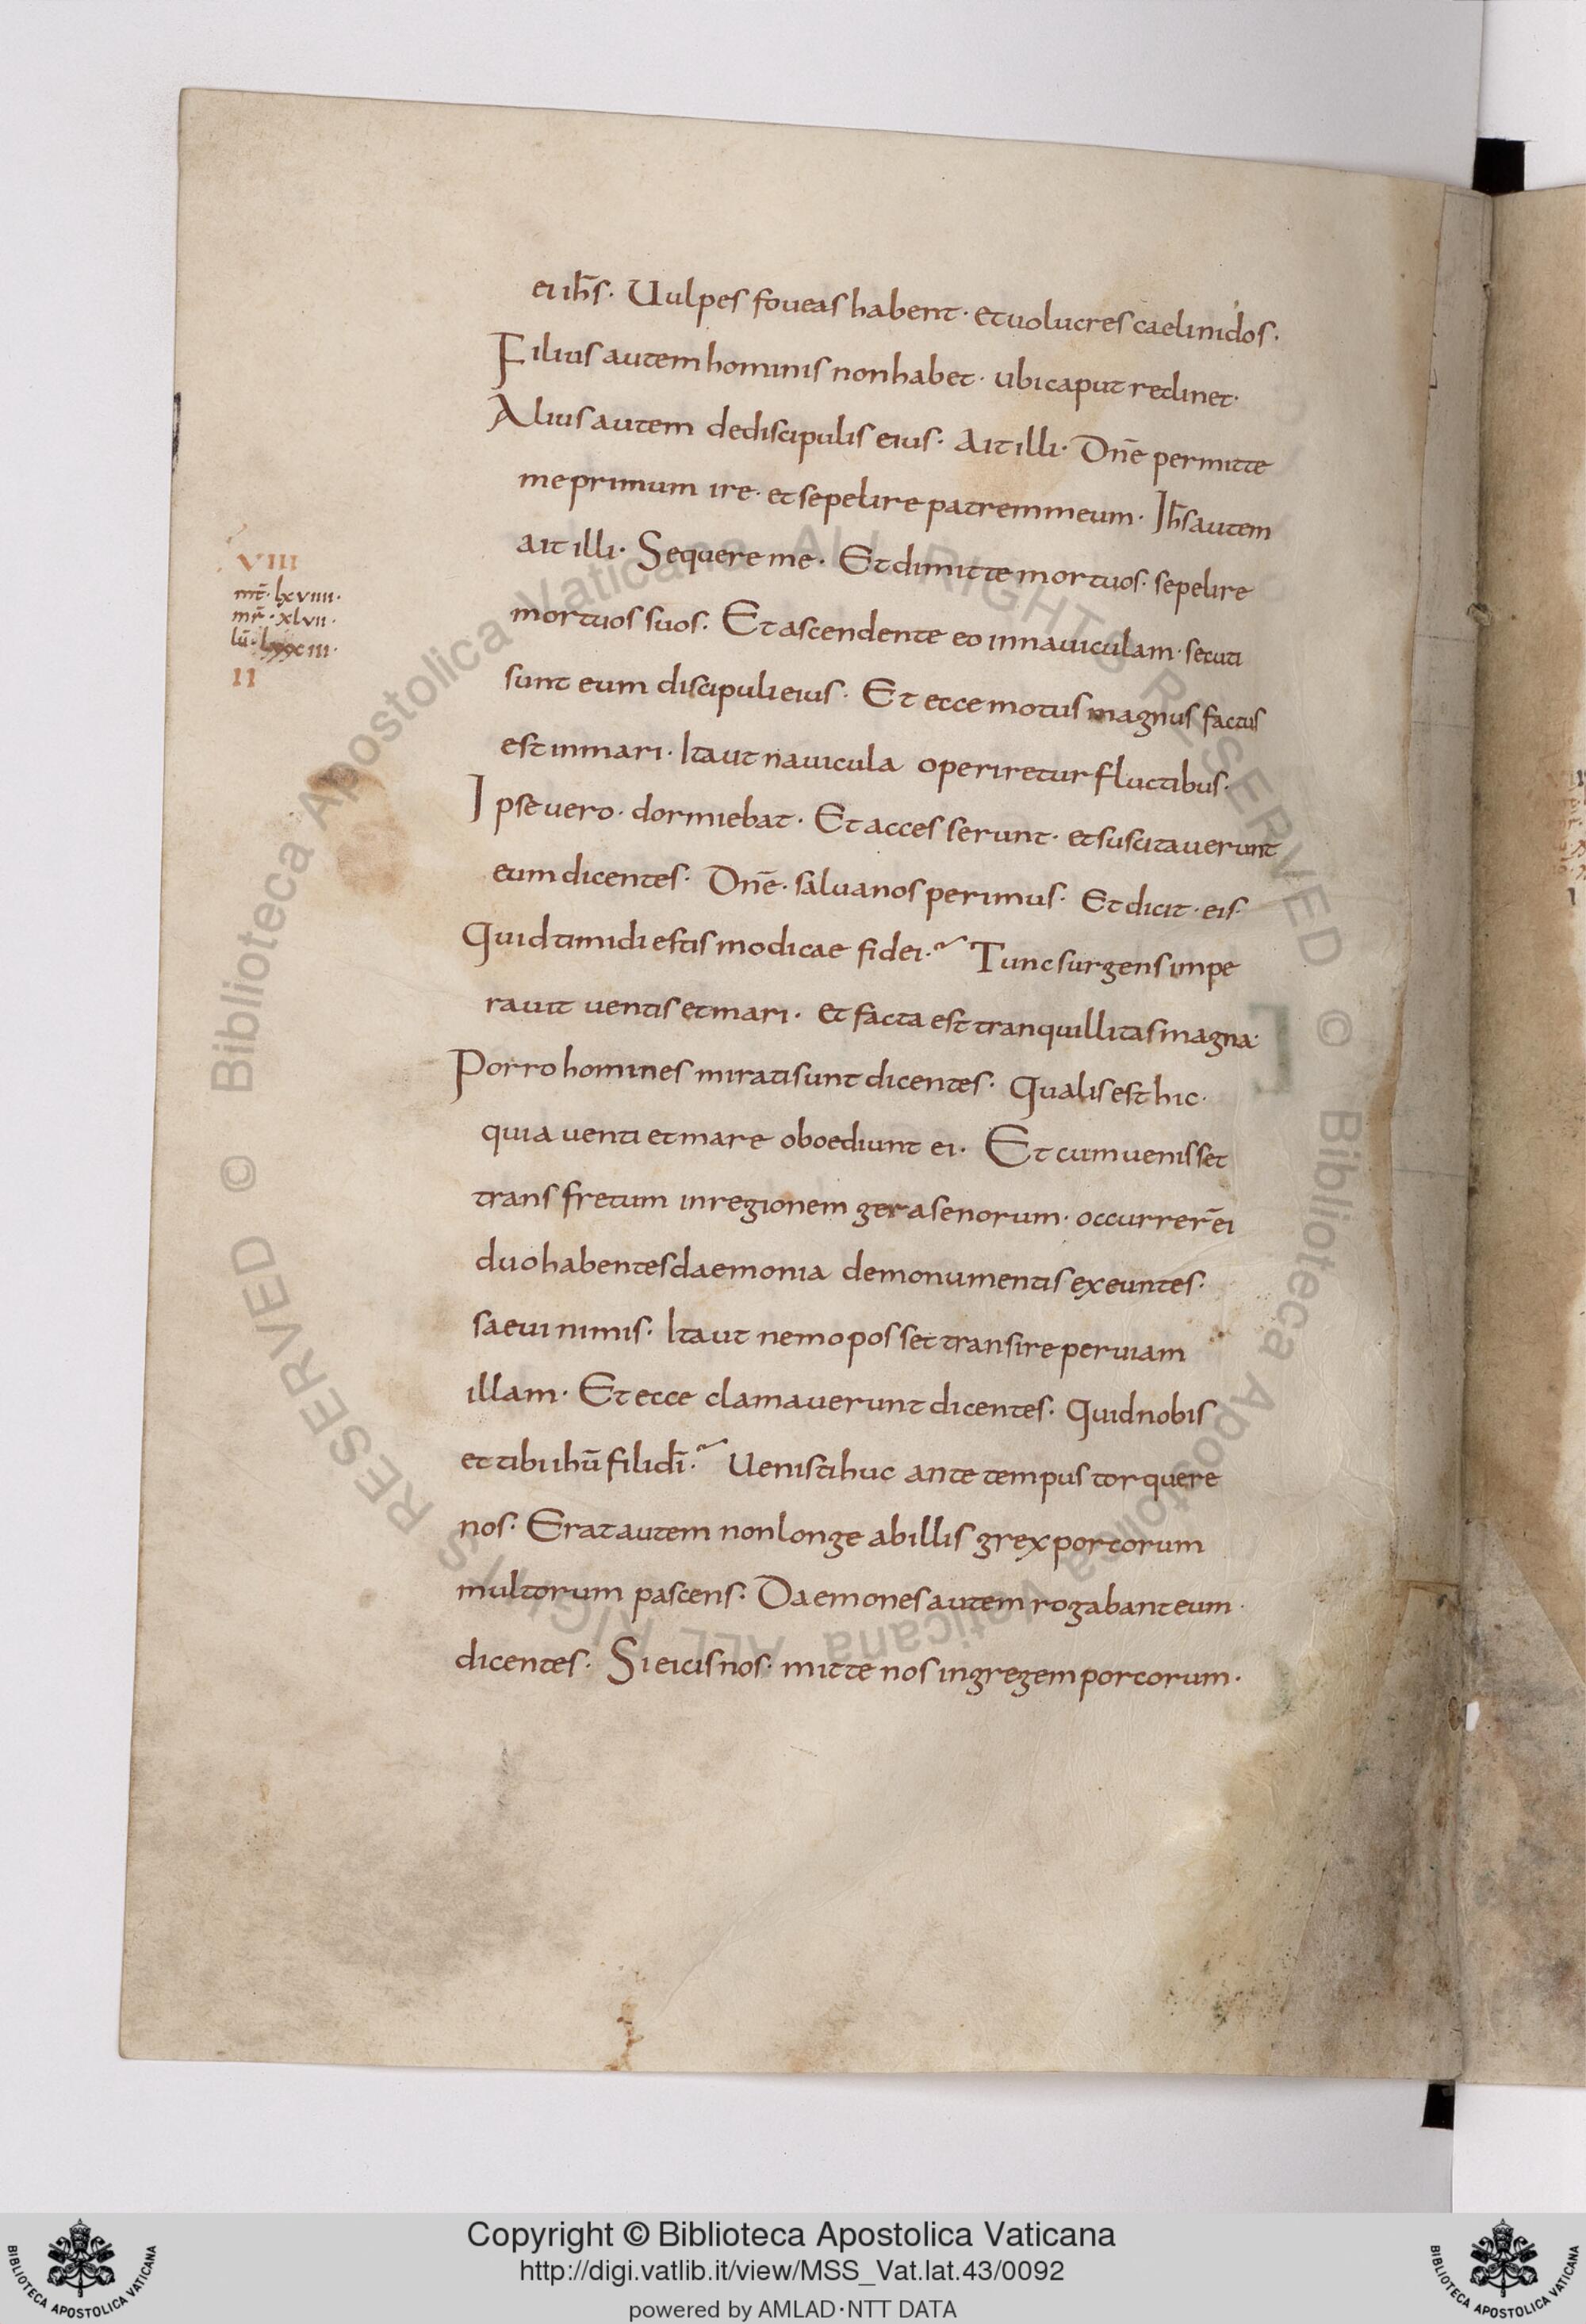 ei ih̄s. Uulpes foueas habent. et uolucres caeli nidos.
Filius autem hominis non habet. ubi caput reclinet.
Alius autem de discipulis eius. Ait illi. Dn̄e permitte
me primum ire. et sepelire patrem meum. Ih̄s autem
ait illi. Sequere me. Et dimitte mortuos. sepelire
VIII
mt̄. lxviiii.
mr̄. xlvii.
lū. lxxxiii.
II
mortuos suos. Et ascendente eo in nauiculam. secuti
sunt eum discipuli eius. Et ecce motus magnus factus
est in mari. Ita ut nauicula operiretur fluctibus.
Ipse uero. dormiebat. Et accesserunt. et suscitauerunt
eum dicentes. Dn̄e. salua nos perimus. Et dicit. eis.
Quid timidi estis modicae fidei. Tunc surgens impe
rauit uentis et mari. et facta est tranquillitas magna.
Porro homines mirati sunt dicentes. Qualis est hic.
quia uenti et mare oboediunt ei. Et cum uenisset
trans fretum in regionem gerasenorum. occurrer̄ ei
duo habentes daemonia de monumentis exeuntes.
saeui nimis. Ita ut nemo posset transire per uiam
illam. Et ecce clamauerunt dicentes. Quid nobis
et tibi ihū fili dī. Uenisti huc ante tempus torquere
nos. Erat autem non longe ab illis grex porcorum
multorum pascens. Daemones autem rogabant eum.
dicentes. Si eicis nos. mitte nos in gregem porcorum.
© Biblioteca Apostolica Vaticana ALL RIGHTS RESERVED
© Biblioteca Apostolica Vaticana ALL RIGHTS RESERVED
Copyright © Biblioteca Apostolica Vaticana
http://digi.vatlib.it/view/MSS_Vat.lat.43/0092
powered by AMLAD·NTT DATA
BIBLIOTECA APOSTOLICA VATICANA
BIBLIOTECA APOSTOLICA VATICANA